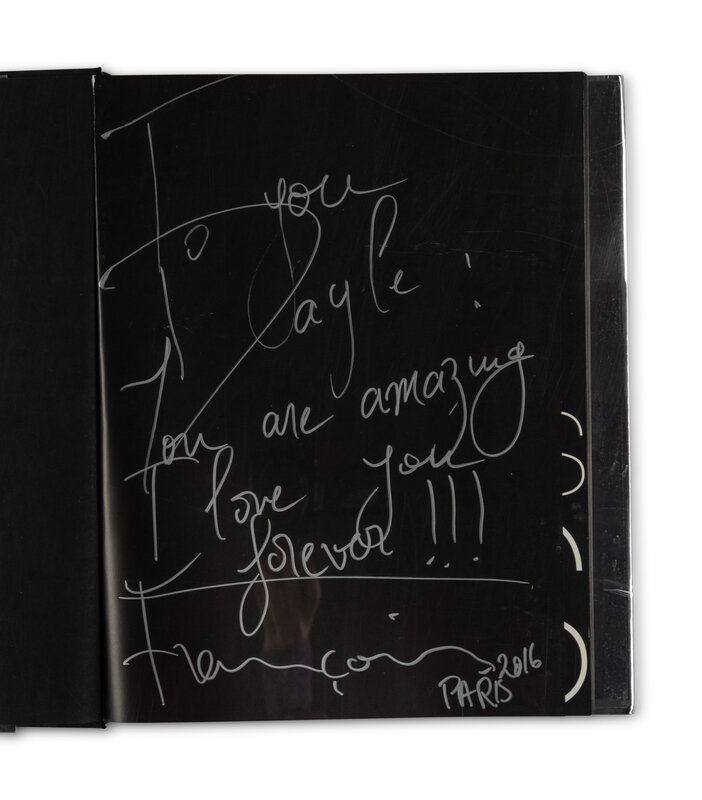 To you
Dayle !
You are amazing
I love you
forever !!!
François
PARIS 2016